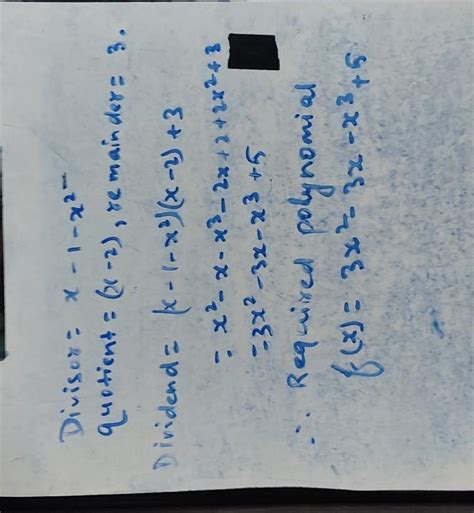 Divisor = x - 1 - x²
quotient = (x-2), remainder = 3.
Dividend = (x - 1 - x²)(x-2) + 3
= x² - x - x³ - 2x + 2 + 2x² + 3
= 3x² - 3x - x³ + 5
∴ Required polynomial
f(x) = 3x² - 3x - x³ + 5